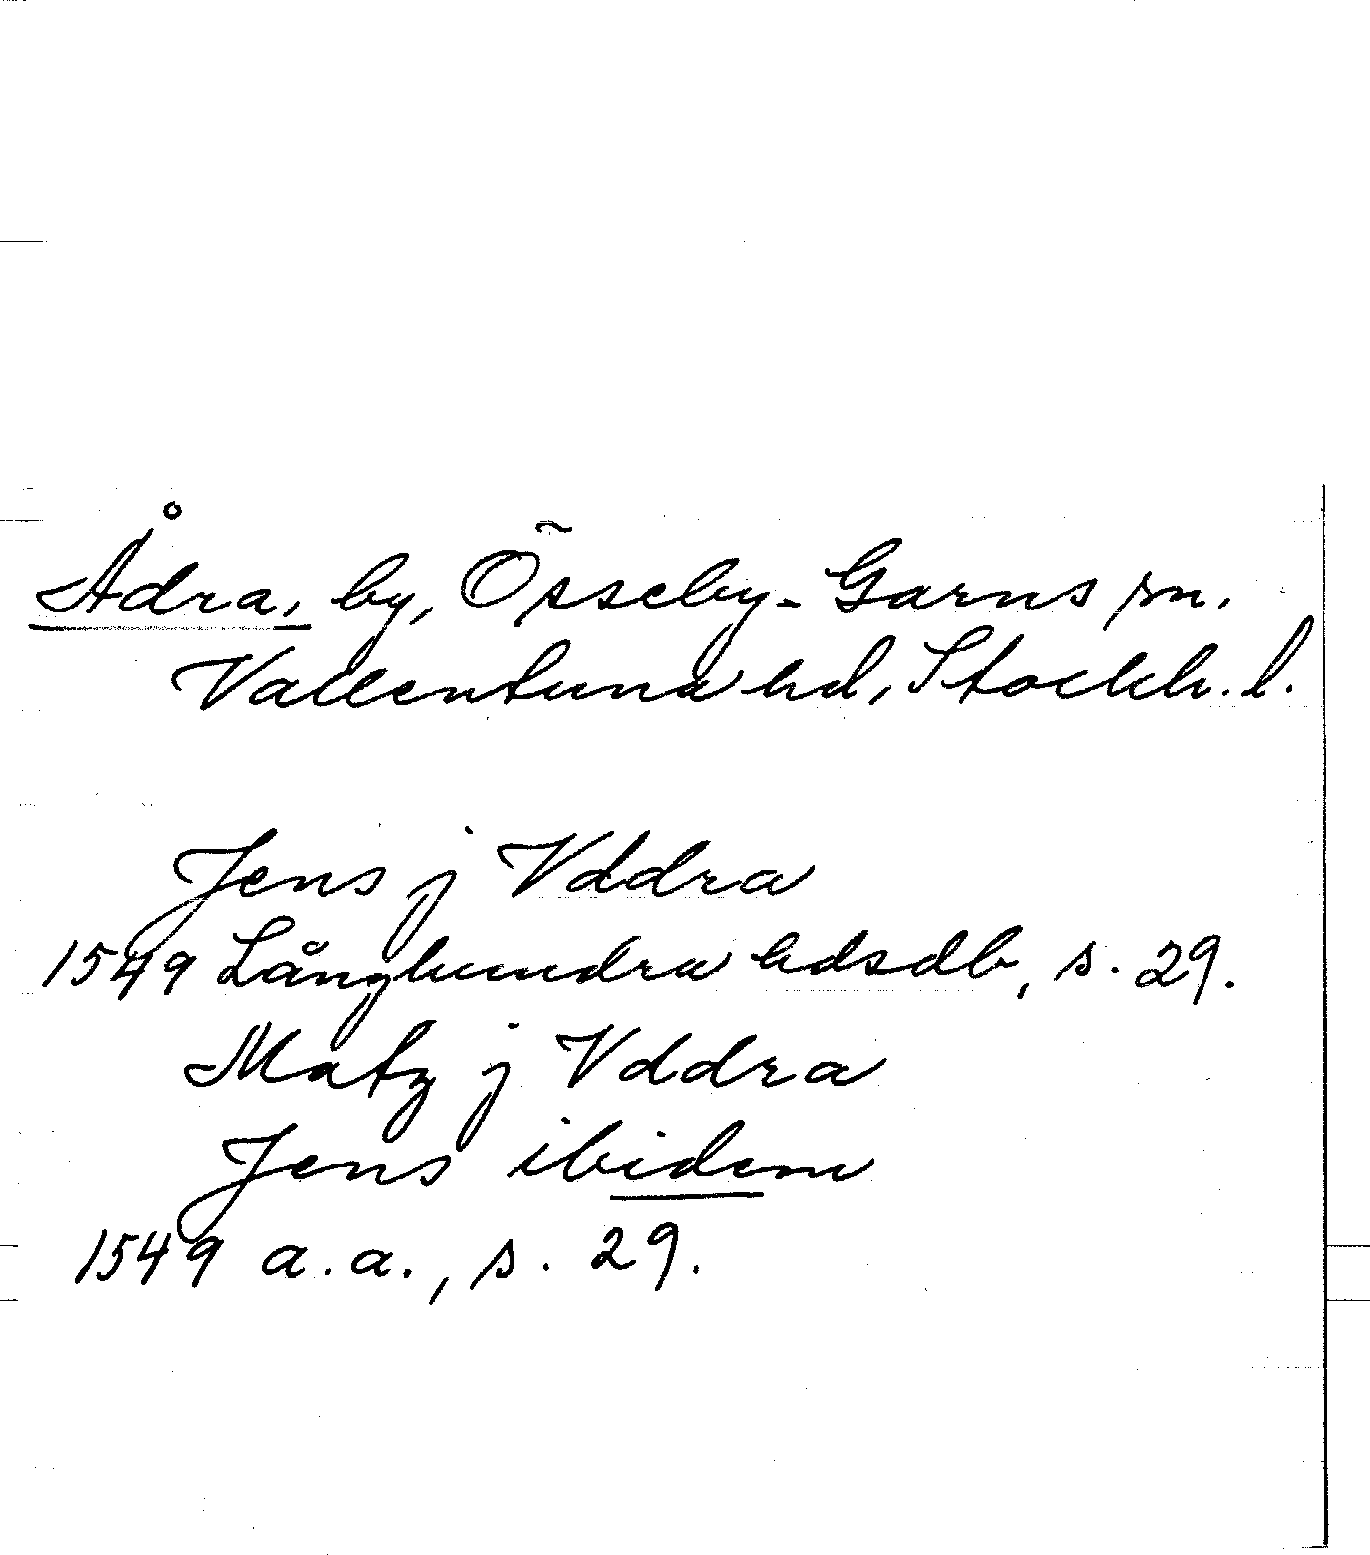 Ådra, by, Össeby-Garns sn.
Vallentuna hd, Stockh. l.
Jens j Vddra
1549 Långhundra hdsdb, s. 29.
Matz j Vddra
Jens ibidem
1549 a.a., s. 29.